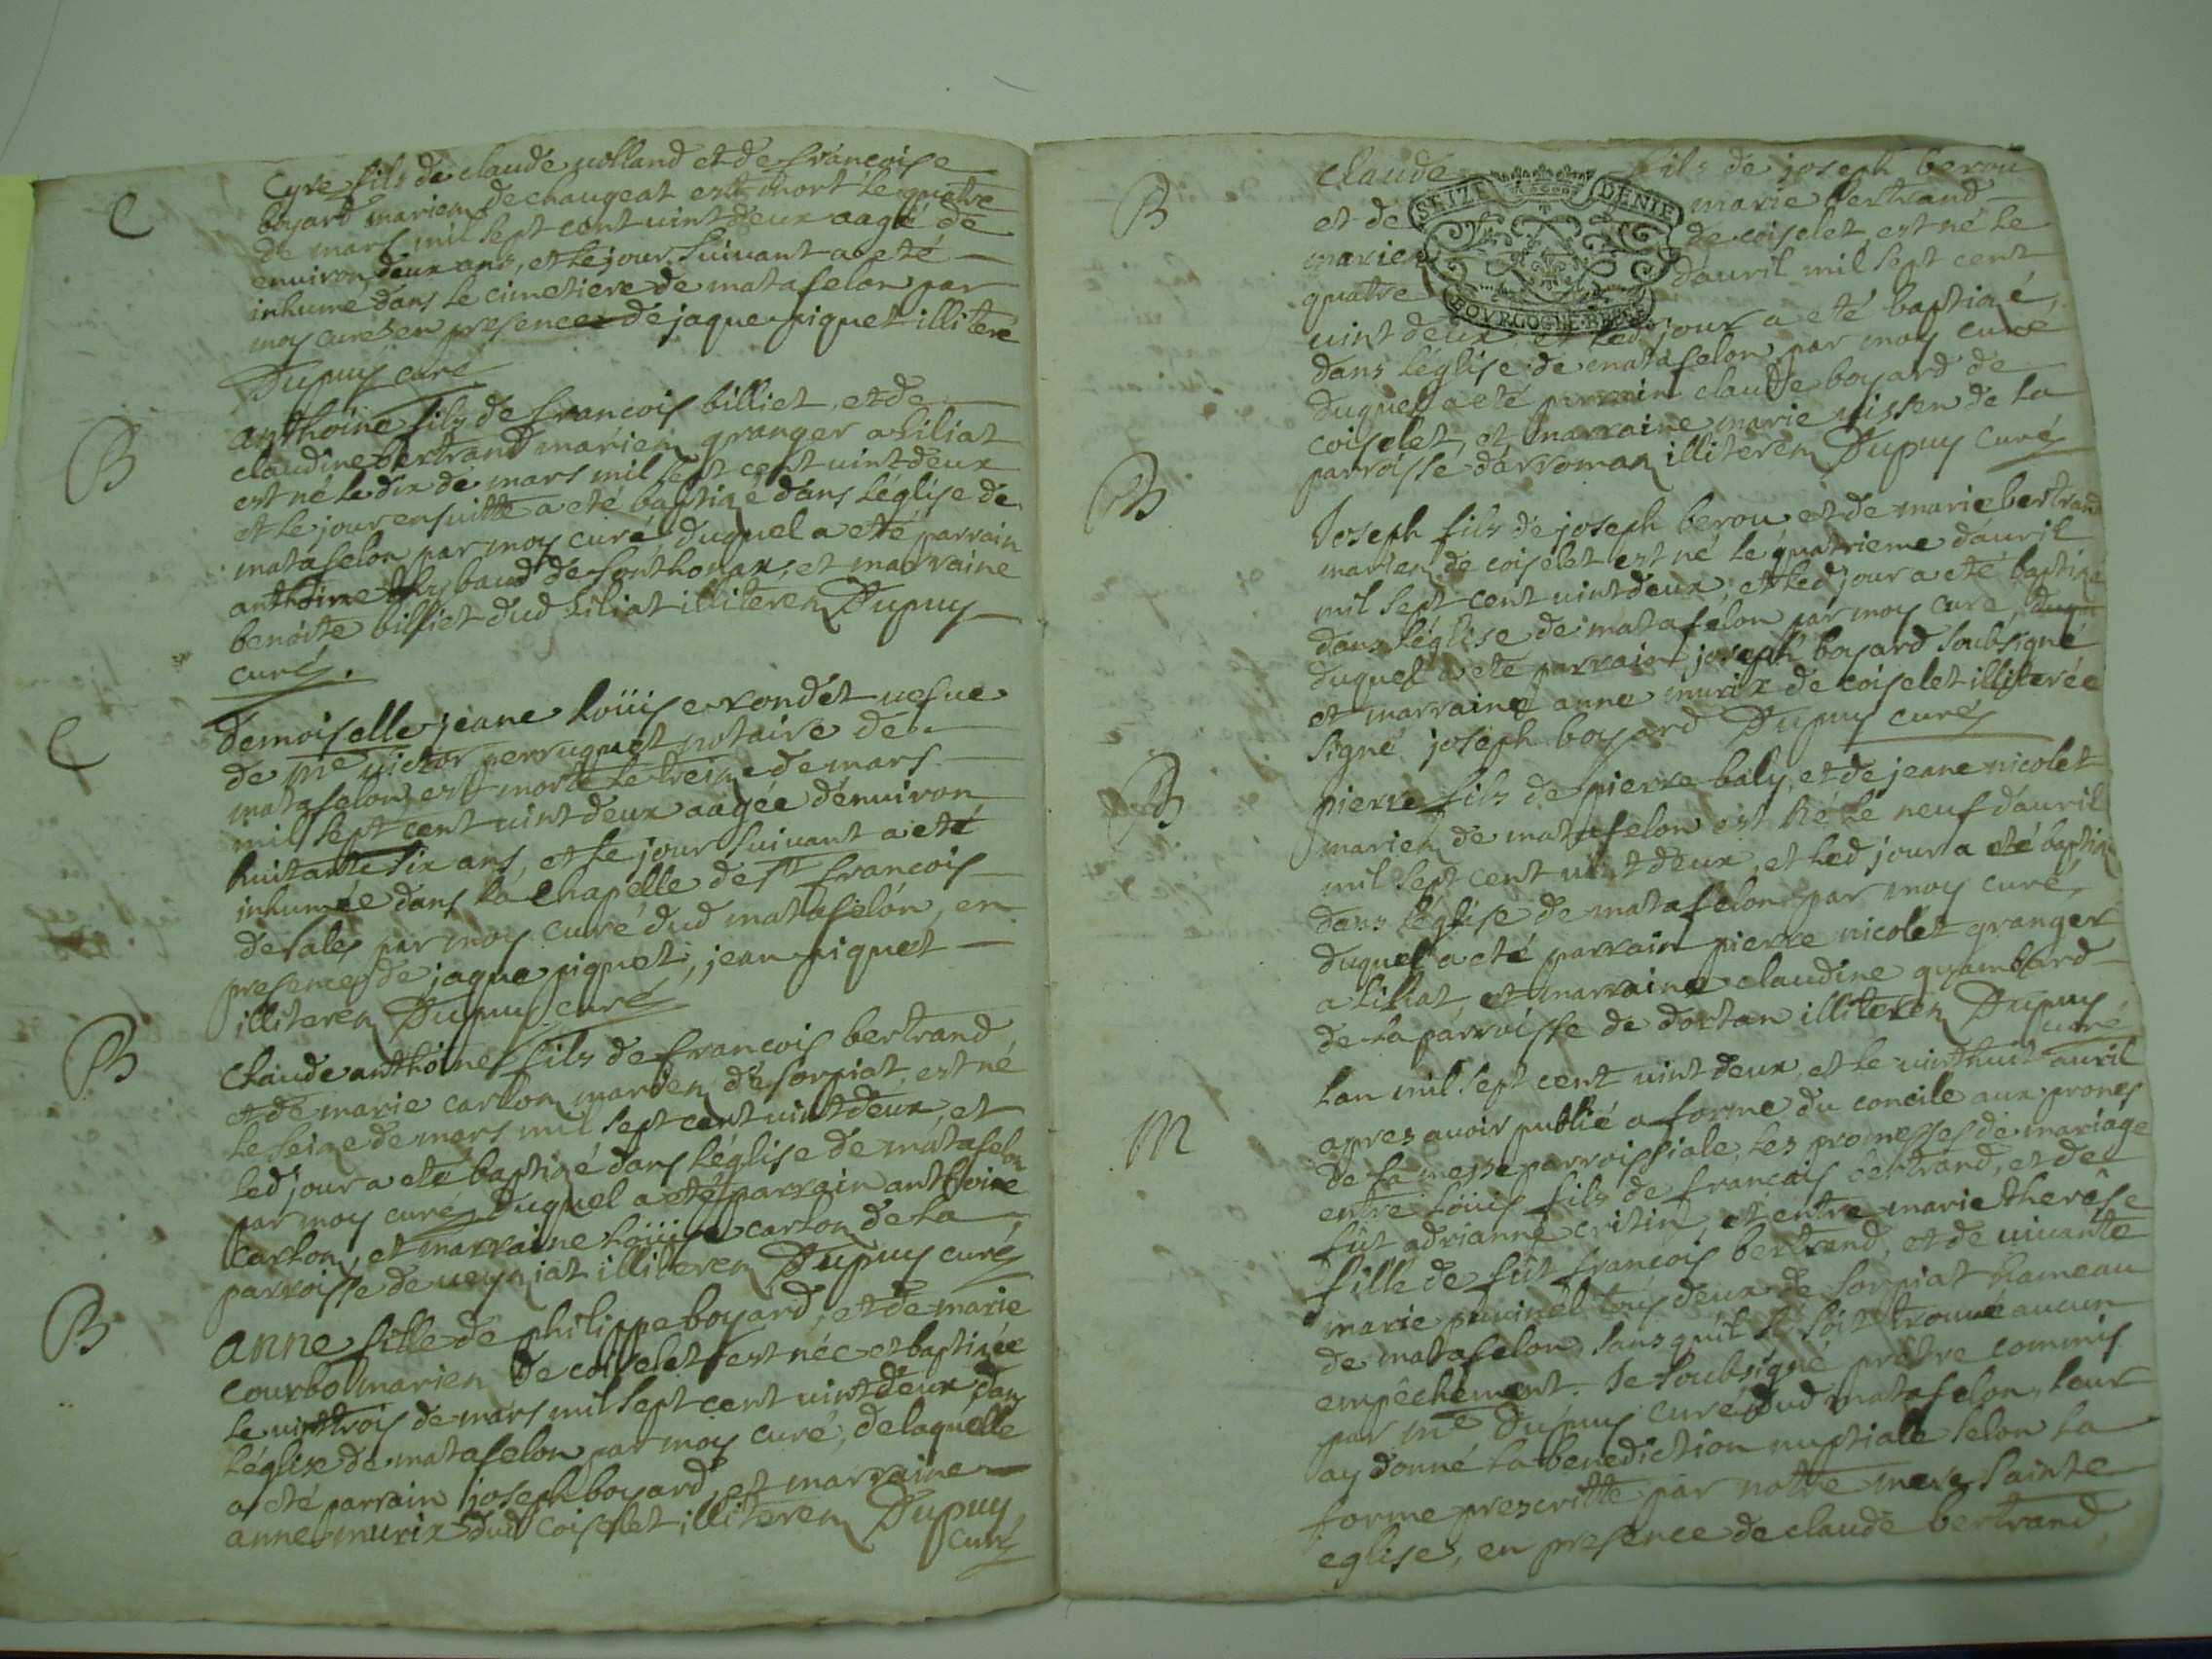 C
Cyre fils de claude uolland et de francoise
boyard mariem de chaugeat est mort le quatre
de mars mil sept cent uint deux aagé de
enuiron deux ans, et le jour suiuant a eté
inhumé dans le cimetiere de matafelon par
moy curé en presence de jaque piquet illitere
Dupuy curé
B
anthoine fils de francois billiet, et de
claudine bertrand mariem granger a Siliat
est né le dix de mars mil sept cent uint deux
et le jour ensuitte a eté baptizé dans l'église de
matafelon par moy curé, duquel a eté parrain
anthoine baud de sonthonax, et marraine
benoite billiet dud Siliat illiterem Dupuy
curé.
C
demoiselle jeane Loüise rondet uefue
de me uictor perruquet notaire de
matafelon est morte le treize de mars
mil sept cent uint deux aagée d'enuiron
huitante six ans, et le jour suiuant a eté
inhumée dans la chapelle de st francois
de sales par moy curé dud matafelon, en
presence de jaque piquet, jean piquet
illiterem Dupuy curé
B
Claude anthoine fils de francois bertrand
et de marie carlon mariem de sorpiat, est né
le seize de mars mil sept cent uint deux, et
led jour a eté baptizé dans l'église de matafelon
par moy curé, duquel a eté parrain anthoine
carlon, et marraine Loüise carlon de la
parroisse de ueyziat illiterem Dupuy curé
B
anne fille de philippe boyard, et de marie
courbo mariem de coiselet est née et baptizée
le uint trois de mars mil sept cent uint deux dans
l'église de matafelon par moy curé, de laquelle
a eté parrain joseph boyard, et marraine
anne murix dud Coiselet illiterem Dupuy
curé
B
Claude fils de joseph berou
et de marie bertrand
mariem de coiselet, est né le
quatre d'auril mil sept cent
SEIZE DENIE
uint deux et led jour a eté baptizé
dans l'église de matafelon par moy curé
duquel a eté parrain claude boyard de
coiselet, et marraine marie uissen de la
parroisse d'arroman illiterem Dupuy curé
B
Joseph fils de joseph berou et de marie bertrand
mariem de coiselet est né le quatrieme d'auril
mil sept cent uint deux, et led jour a eté baptizé
dans l'église de matafelon par moy curé,
duquel a eté parrain joseph boyard soubsigné
et marraine anne murix de coiselet illiterée
signé joseph boyard Dupuy curé
B
pierre fils de pierre baly, et de jeane nicolet
mariem de matafelon est né le neuf d'auril
mil sept cent uint deux, et led jour a eté baptizé
dans l'église de matafelon par moy curé,
duquel a eté parrain pierre nicolet granger
a Siliat et marraine claudine guambard
de la parroisse de dortan illiterem Dupuy
curé
M
Lan mil sept cent uint deux, et le uint huit auril
apres auoir publié a forme du concile aux prones
de la messe parroissiale, les promesses de mariage
entre Loüis fils de francois bertrand, et de
fût adrianne critin, et entre marie therêse
fille de fût francois bertrand, et de uiuante
marie puuinel tous deux de sorpiat hameau
de matafelon, sans quil se soit trouué aucun
empêchement. Je soubsigné prêtre commis
par me Dupuy curé dud matafelon, leur
ay donné la benediction nuptiale selon la
forme prescritte par notre mere sainte
eglise, en presence de claude bertrand,